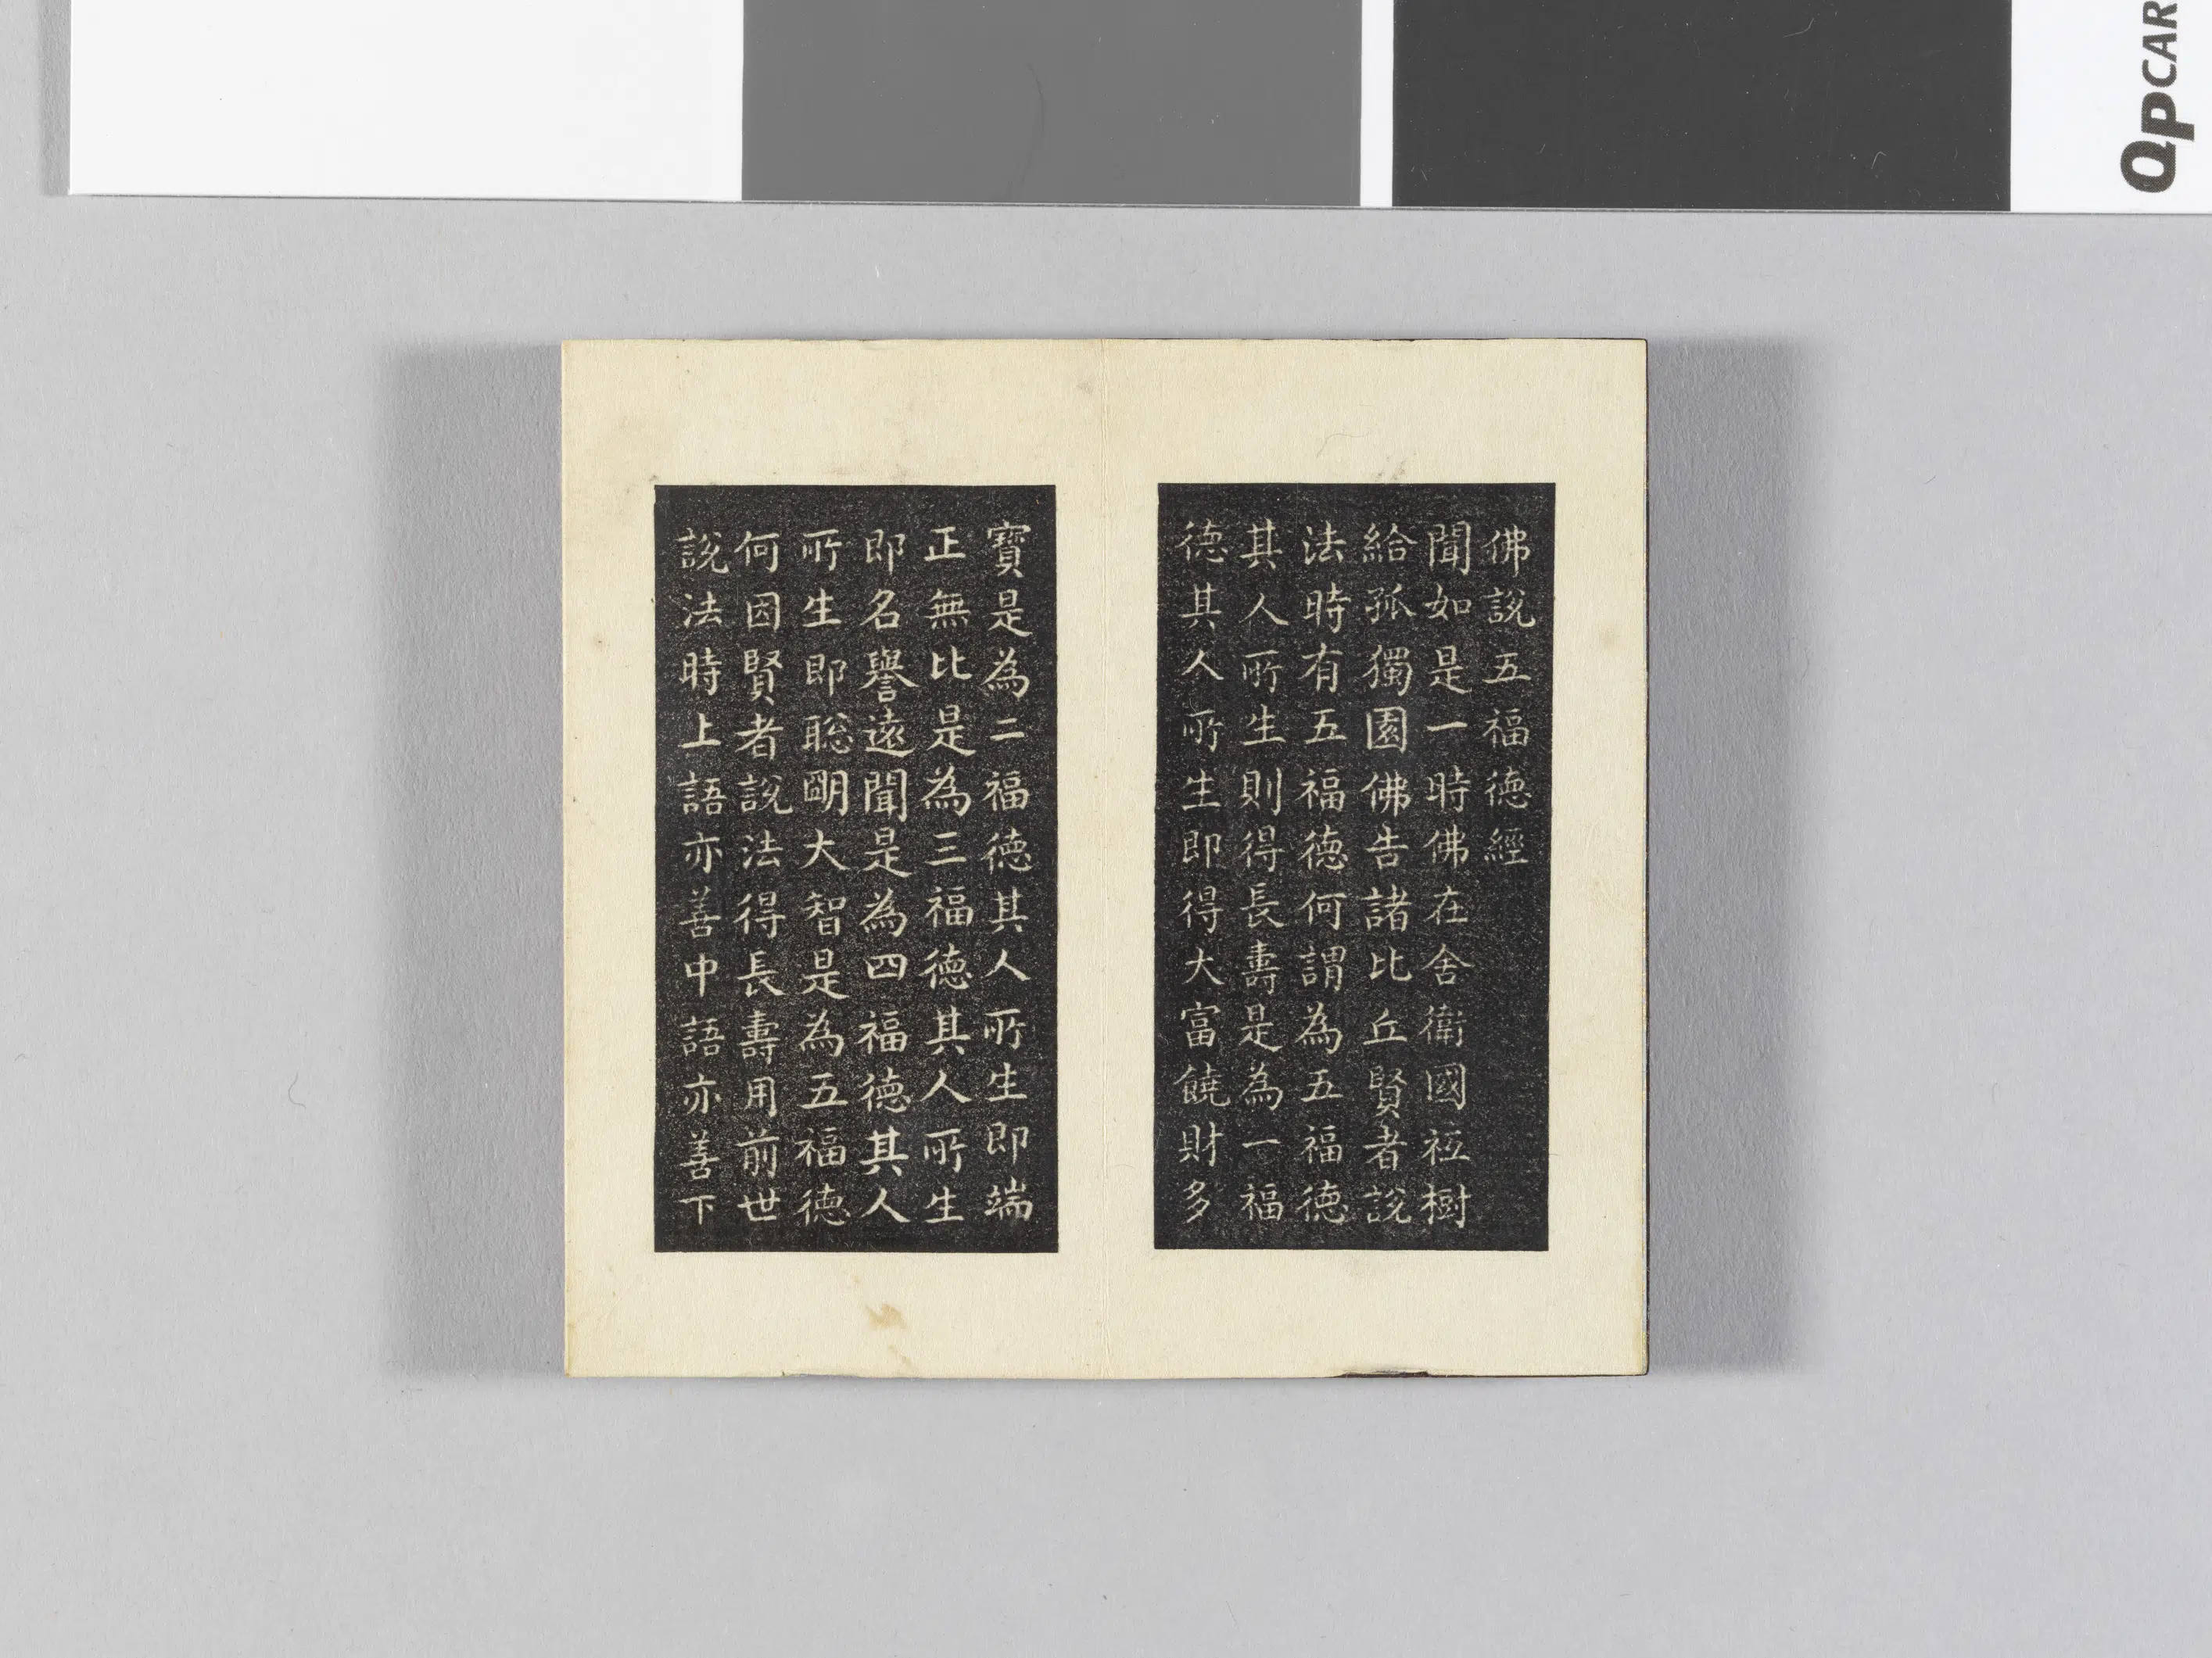 QPCAR
佛說五福德經
聞如是一時佛在舍衛國祇樹
給孤獨園佛告諸比丘賢者說
法時有五福德何謂為五福德
其人所生則得長壽是為一福
德其人所生即得大富饒財多
寶是為二福德其人所生即端
正無比是為三福德其人所生
即名譽遠聞是為四福德其人
所生即聡明大智是為五福德
何因賢者說法得長壽用前世
說法時上語亦善中語亦善下